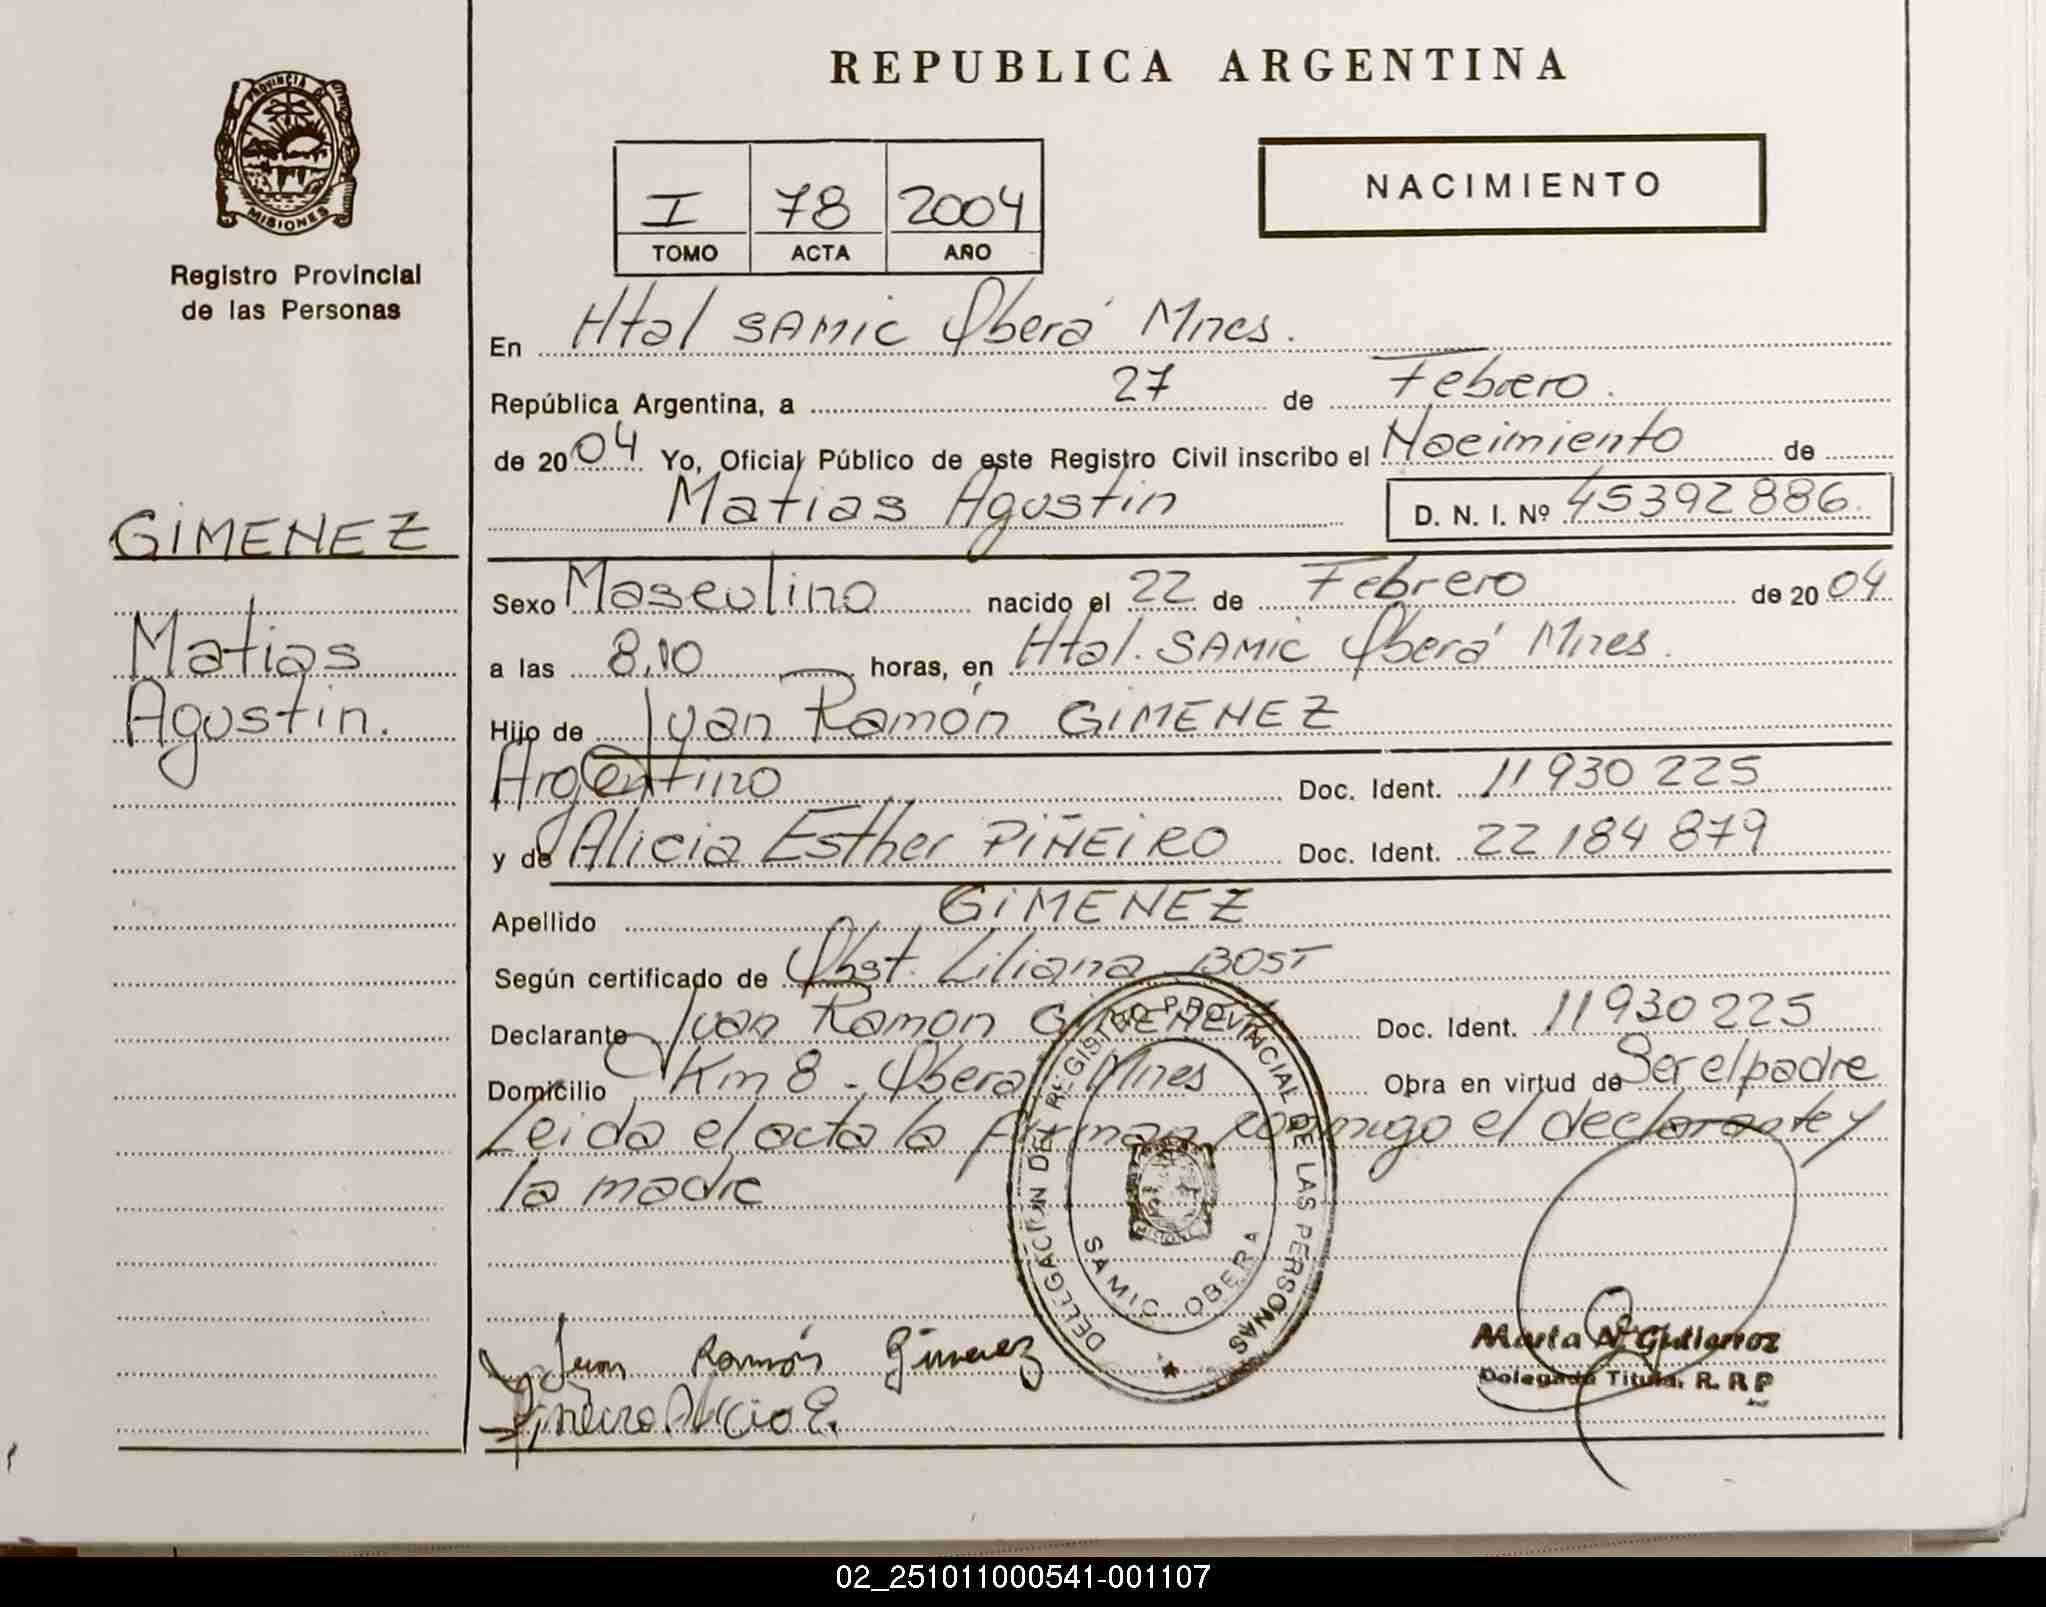 REPUBLICA ARGENTINA
PROVINCIA DE
MISIONES
Registro Provincial
de las Personas
I 78 2004
TOMO ACTA AÑO
NACIMIENTO
En Htal SAMIC Oberá Mnes.
República Argentina, a 27 de Febrero.
de 2004 Yo, Oficial Público de este Registro Civil inscribo el Nacimiento de
Matias Agustin D. N. I. Nº 45392886.
GIMENEZ
Matias
Agustin.
Sexo Masculino nacido el 22 de Febrero de 2004
a las 8,10 horas, en Htal. SAMIC Oberá Mnes.
Hijo de Juan Ramón GIMENEZ
Argentino Doc. Ident. 11930225
y de Alicia Esther PIÑEIRO Doc. Ident. 22184879
Apellido GIMENEZ
Según certificado de Obst. Liliana BOST
Declarante Juan Ramon GIMENEZ Doc. Ident. 11930225
Domicilio Km 8 - Oberá Mnes Obra en virtud de Ser el padre
Leida el acta la firman conmigo el declarante y
la madre
DELEGACION DEL REGISTRO PROVINCIAL DE LAS PERSONAS
SAMIC OBERA
Juan Ramón Gimenez
Piñeiro Alicia E.
Marta N. Gutierrez
Delegada Titular R. R. P
02_251011000541-001107